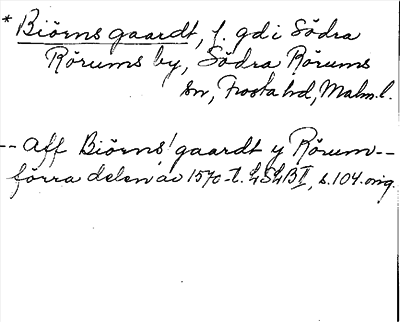 * Biörns gaardt, f. gd i Södra
Rörums by, Södra Rörums
sn, Frosta hd, Malm. l.
-- aff Biörns' gaardt y Rörum --
förra delen av 1570-t. LSLB II, s. 104. orig.